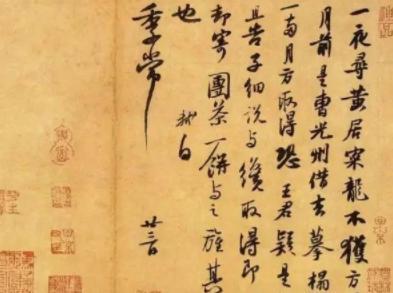 一夜尋黃居寀龍不獲方
月前是曹光州借去摹搨
一兩月方取得恐王君疑是
且告子細說與纔取得即
却寄團茶一餅與之旌其
也 軾白
季常 廿三日